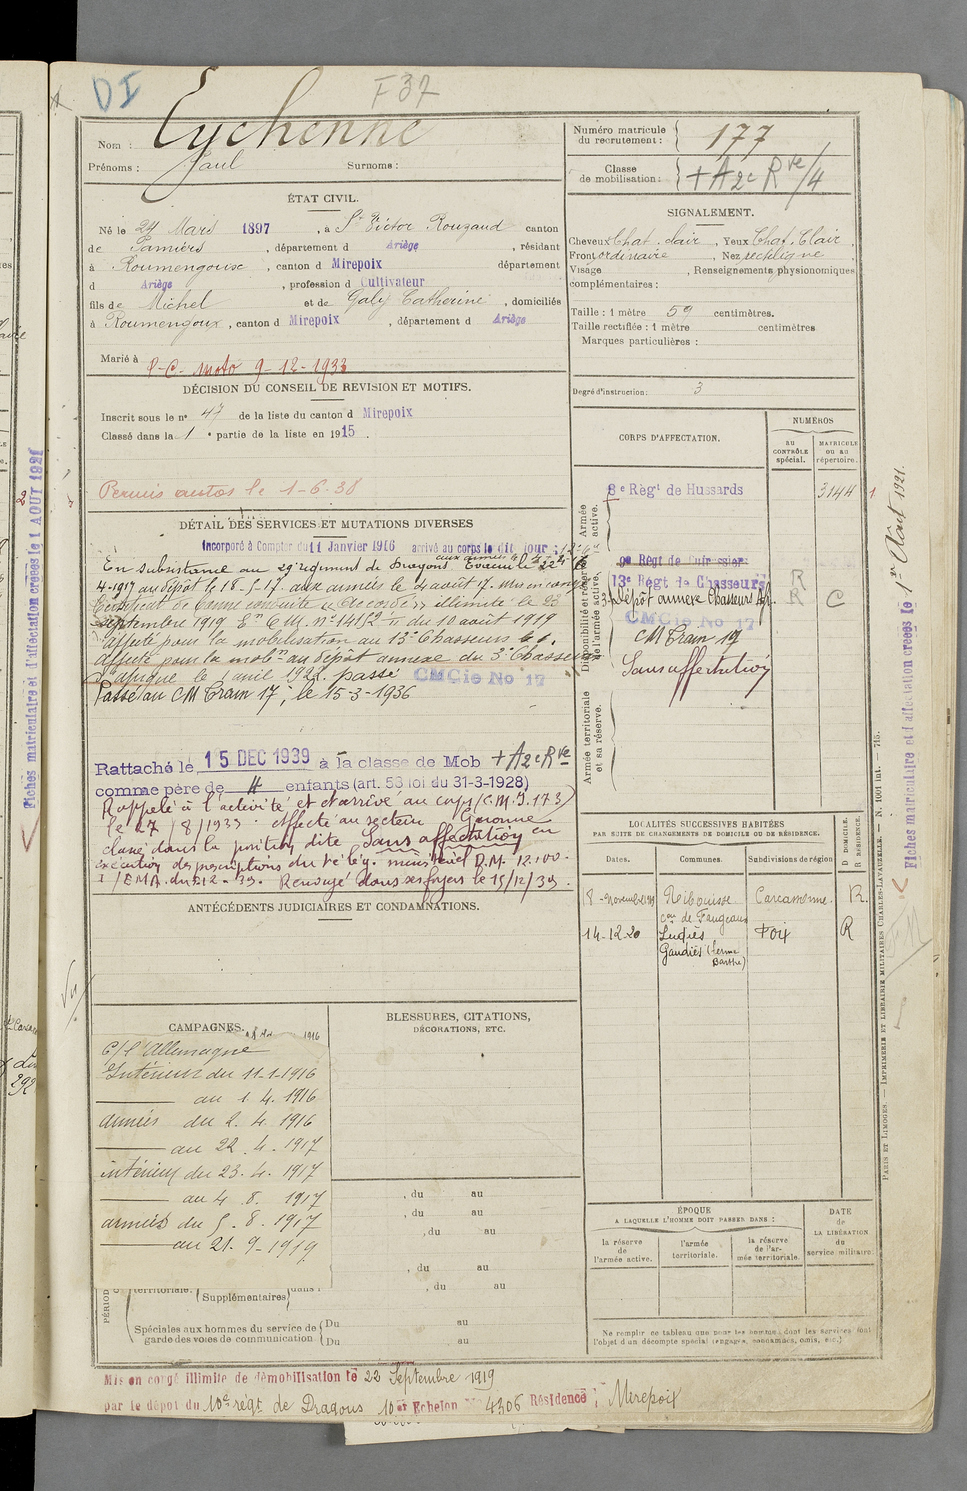 DI
F37
Nom : Eychenne
Prénoms : Paul Surnoms :
Numéro matricule du recrutement : 177
Classe de mobilisation : + A 2e Rve/4
ÉTAT CIVIL.
Né le 29 Mars 1897, à St Victor Rouzaud canton
de Pamiers, département d Ariège, résidant
à Roumengoux, canton d Mirepoix département
d Ariège, profession d Cultivateur
fils de Michel et de Galy Catherine, domiciliés
à Roumengoux, canton d Mirepoix, département d Ariège
Marié à
P.C. moto 9-12-1933
DÉCISION DU CONSEIL DE REVISION ET MOTIFS.
Inscrit sous le no 47 de la liste du canton d Mirepoix
Classé dans la 1 e partie de la liste en 1915.
Permis autos le 1-6-38
DÉTAIL DES SERVICES ET MUTATIONS DIVERSES
Incorporé à Compter du 11 Janvier 1916 arrivé au corps le dit jour;
En subsistance au 29e régiment de Dragons aux armées le Evacué le 22
4-1917 au dépôt le 18-5-17. aux armées le 4 août 17. mis en congé
Certificat de bonne conduite "Accordé" illimité le 23
Septembre 1919 Cn C.M. no 14152 du 10 août 1919
Affecté pour la mobilisation au 13e Chasseurs
Affecté pour la mobon au dépôt annexe du 3e Chasseurs
d'afrique le avril 1922. passé CMCie No 17
Passé au CM Train 17, le 15-3-1936
Rattaché le 15 DEC 1939 à la classe de Mob + A 2e Rve
comme père de 4 enfants (art. 58 loi du 31-3-1928)
Rappelé à l'activité et est arrivé au corps (C.M.I. 173)
le 27/8/1939. affecté au secteur Garonne
classé dans la position dite Sans affectation en
exécution des prescriptions du télég. ministériel D.M. 12100-
I/EMA. du 12-39. Renvoyé dans ses foyers le 15/12/39.
ANTÉCÉDENTS JUDICIAIRES ET CONDAMNATIONS.
CAMPAGNES.
1916
C/ l'Allemagne
Intérieur du 11-1-1916
au 1.4.1916
armées du 2.4.1916
au 22.4.1917
intérieur du 23.4.1917
au 4.8.1917
armées du 5.8.1917
au 21.9-1919
BLESSURES, CITATIONS,
DÉCORATIONS, ETC.
, du au
, du au
, du au
, du au
, du au
territoriale.
Supplémentaires
Spéciales aux hommes du service de garde des voies de communication
Du au
Du au
SIGNALEMENT.
Cheveux Chat. clair, Yeux Chat. Clair,
Front ordinaire, Nez rectiligne,
Visage , Renseignements physionomiques
complémentaires :
Taille : 1 mètre 59 centimètres.
Taille rectifiée : 1 mètre centimètres
Marques particulières :
Degré d'instruction : 3
CORPS D'AFFECTATION.
NUMÉROS
AU CONTRÔLE spécial.
MATRICULE OU AU répertoire.
Armée active.
8e Régt de Hussards 3144
Disponibilité et réserve de l'armée active.
Régt de Cuirassiers
13e Régt de Chasseurs R
Dépôt annexe Chasseurs Afr. R C
CMCie No 17
CM Train 17
Sans affectation
Armée territoriale et sa réserve.
LOCALITÉS SUCCESSIVES HABITÉES
PAR SUITE DE CHANGEMENTS DE DOMICILE OU DE RÉSIDENCE.
Dates. Communes. Subdivisions de région D DOMICILE. R RÉSIDENCE.
8-novembre 1919 Ribouisse Carcassonne. R.
con de Fangeaux
14-12-20 Ludiès Foix R
Gaudiès (ferme Barthe)
ÉPOQUE
A LAQUELLE L'HOMME DOIT PASSER DANS :
la réserve de l'armée active.
l'armée territoriale.
la réserve de l'armée territoriale.
DATE de LA LIBÉRATION du service militaire.
Ne remplir ce tableau que pour les hommes dont les services font
l'objet d'un décompte spécial (engagés, condamnés, omis, etc.)
Mis en congé illimité de démobilisation le 22 Septembre 1919
par le dépôt du 10e régt de Dragons 10er Echelon No 4306 Résidence : Mirepoix
Fiches matriculaire et d'affectation créées le 1 AOUT 1921
Fiches matriculaire et d'affectation créées le 1er Août 1921.
PARIS ET LIMOGES. — IMPRIMERIE ET LIBRAIRIE MILITAIRES CHARLES-LAVAUZELLE. — N. 1001 int. — 715.